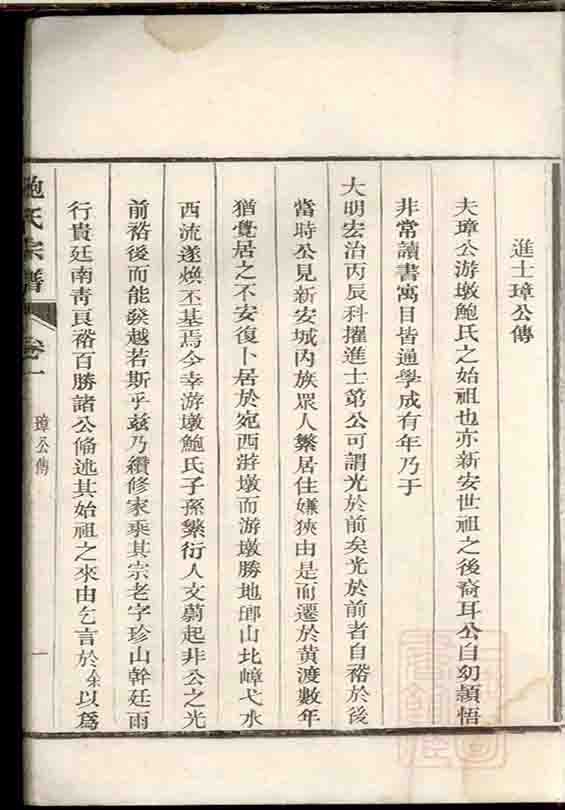 進士璋公傳
夫璋公游墩鮑氏之始祖也亦新安世祖之後裔耳公自幼穎悟
非常讀書寓目皆通學成有年乃于
大明宏治丙辰科擢進士第公可謂光於前矣光於前者自裕於後
當時公見新安城內族眾人繁居住嫌狹由是而遷於黄渡數年
猶覺居之不安復卜居於宛西游墩而游墩勝地郎山北嶂弋水
西流遂煥丕基焉今幸游墩鮑氏子孫繁衍人文蔚起非公之光
前裕後而能發越若斯乎茲乃纘修家乘其宗老字珍山幹廷雨
行貴廷南青良裕百勝諸公俻述其始祖之來由乞言於余以為
鮑氏宗譜
卷一
璋公傳
一